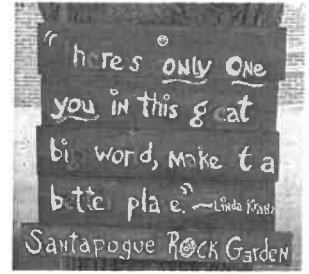 "here's ONLY ONE
you in this g eat
bi wor d, Make t a
bette pla e." ~Linda Kranz
Santapogue ROCK Garden